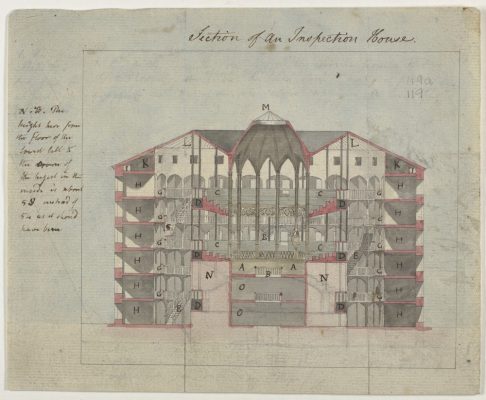 Section of an Inspection House.
119
N.B. The
height here from
the floor of the
lowest cell to
the crown of
the highest in the
inside is about
instead of
54 as it should
have been
M
L L
K K
H H
G C C G
H D D H
H G G H
C E C
H G D D E H
N A B A N
H G G H
O
H E D O D H